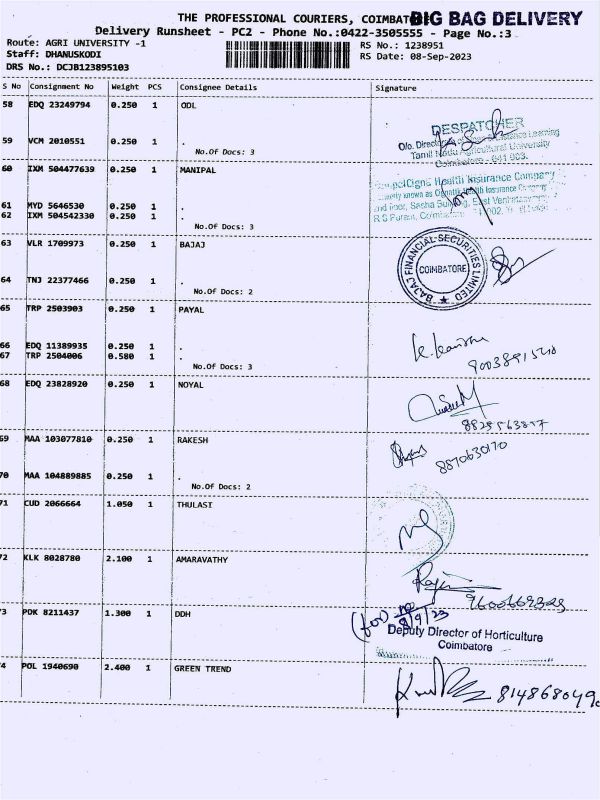 THE PROFESSIONAL COURIERS, COIMBAT
BIG BAG DELIVERY
Delivery Runsheet - PC2 - Phone No.:0422-3505555 - Page No.:3
Route: AGRI UNIVERSITY -1
RS No.: 1238951
Staff: DHANUSKODI
RS Date: 08-Sep-2023
DRS No.: DCJB123895103
S No Consignment No Weight PCS Consignee Details Signature
58 EDQ 23249794 0.250 1 ODL
DESPATCHER
59 VCM 2010551 0.250 1 .
O/o. Director Learning
No.Of Docs: 3
Tamil Nadu Agricultural University
Coimbatore - 641 003.
60 IXM 504477639 0.250 1 MANIPAL
Health Insurance Company
61 MYD 5646530 0.250 1 .
62 IXM 504542330 0.250 1
No.Of Docs: 3
63 VLR 1709973 0.250 1 BAJAJ
BAJAJ FINANCIAL SECURITIES LIMITED
COIMBATORE
64 TNJ 22377466 0.250 1 .
No.Of Docs: 2
65 TRP 2503903 0.250 1 PAYAL
66 EDQ 11389935 0.250 1 .
67 TRP 2504006 0.580 1
No.Of Docs: 3
68 EDQ 23828920 0.250 1 NOYAL
69 MAA 103077810 0.250 1 RAKESH
8870630170
70 MAA 104889885 0.250 1 .
No.Of Docs: 2
71 CUD 2066664 1.050 1 THULASI
72 KLK 8028780 2.100 1 AMARAVATHY
73 POK 8211437 1.300 1 DDH
(for)
8/9/23
Deputy Director of Horticulture
Coimbatore
74 POL 1940690 2.400 1 GREEN TREND
814868049